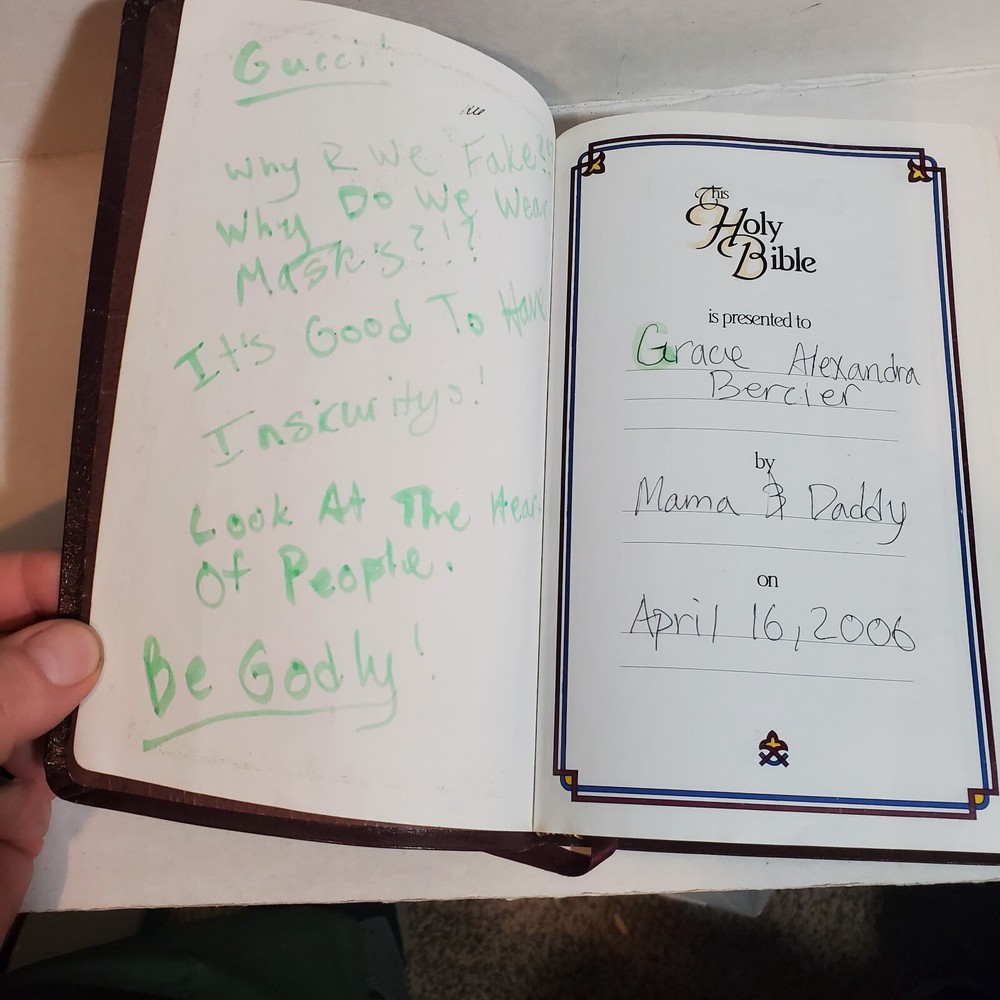 Gucci!
Why R We Fake?!?
Why Do We Wear
Mask's?!?
It's Good To Have
Insicuritys!
Look At The Hear
Of People.
Be Godly!
This
Holy
Bible
is presented to
Gracie Alexandra
Bercier
by
Mama & Daddy
on
April 16, 2006